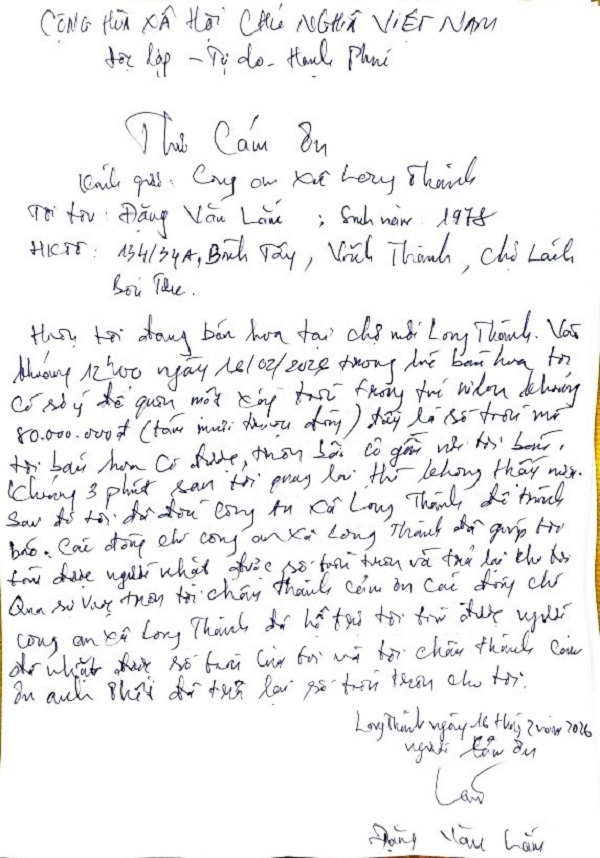 CỘNG HÒA XÃ HỘI CHỦ NGHĨA VIỆT NAM
Độc lập - Tự do - Hạnh Phúc
Thư Cảm Ơn
Kính gửi: Công an xã Long Thành
Tôi tên: Đặng Văn Lắm; Sinh năm: 1978
HKTT: 134/34A, Bình Tây, Vĩnh Thành, Chợ Lách
Bến Tre.
Hiện tôi đang bán hoa tại chợ mới Long Thành. Vào
khoảng 12h00 ngày 16/02/2026 trong lúc bán hoa tôi
có sơ ý để quên một số tiền trong túi nilon khoảng
80.000.000đ (tám mươi triệu đồng) đây là số tiền mà
tôi bán hoa có được, trên bàn gần nơi tôi bán.
Khoảng 3 phút sau tôi quay lại thì không thấy nữa.
Sau đó tôi đã đến công an xã Long Thành để trình
báo. Các đồng chí công an xã Long Thành đã giúp tôi
tìm được người nhặt được số tiền trên và trả lại cho tôi
Qua sự việc trên tôi chân thành cảm ơn các đồng chí
công an xã Long Thành đã hỗ trợ tôi tìm được người
đã nhặt được số tiền của tôi và tôi chân thành cảm
ơn anh đã trả lại số tiền trên cho tôi.
Long Thành ngày 16 tháng 2 năm 2026
người cảm ơn
Lắm
Đặng Văn Lắm